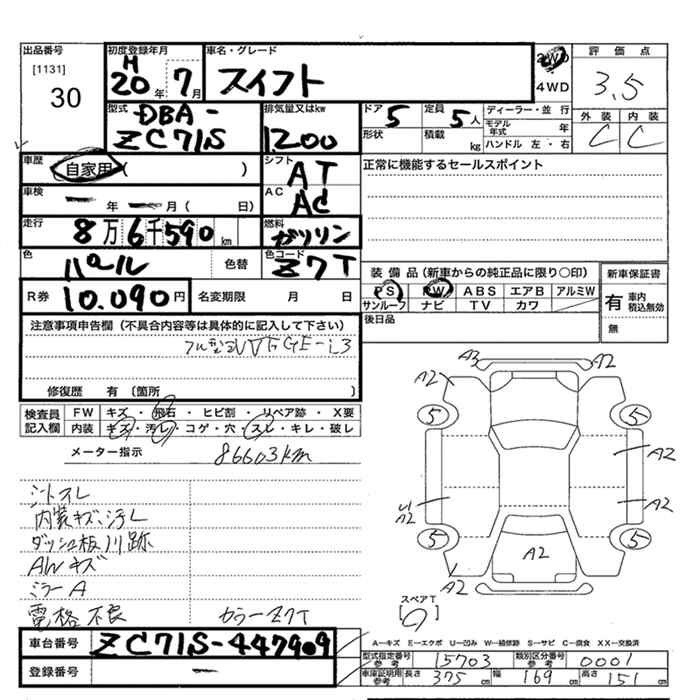 出品番号 初度登録年月 車名・グレード 2WD 評価点
[1131] H 4WD
30 20年 7月 スイフト 3.5
型式 DBA- 排気量又はkw ドア 5 定員 5人 ディーラー・並行 外装 内装
ZC71S 1200 形状 積載 kg モデル年式 年 C C
ハンドル 左・右
車歴 自家用( ) シフト AT 正常に機能するセールスポイント
車検 ー年 ー月( 日) AC AC
走行 8万6千590km 燃料 ガソリン
色 パール 色替 色コード Z7T 装備品(新車からの純正品に限り○印) 新車保証書
R券 10.090円 名変期限 月 日 PS PW ABS エアB アルミW 有 車内積込無効
サンルーフ ナビ TV カワ 無
注意事項申告欄(不具合内容等は具体的に記入して下さい) 後日品
修復歴 有(箇所 )
検査員記入欄 FW キズ・飛石・ヒビ割・リペア跡・X要
内装 キズ・汚レ・コゲ・穴・スレ・キレ・破レ
メーター指示 86603km
A3 A2
A2
5 5
A2
A2 A2
5 5
A2
A2
シートスレ
内装キズ、汚レ
ダッシュ板川跡
AWキズ
ミラーA
電格不良 カラーZ7T
スペアT
[ ]
車台番号 ZC71S-447909 A-キズ E-エクボ U-凹み W-補修跡 S-サビ C-腐食 XX-交換済
型式指定番号参考 15703 類別区分番号参考 0001
登録番号 ー 車庫証明用参考 長さ 375cm 幅 169cm 高さ 151cm